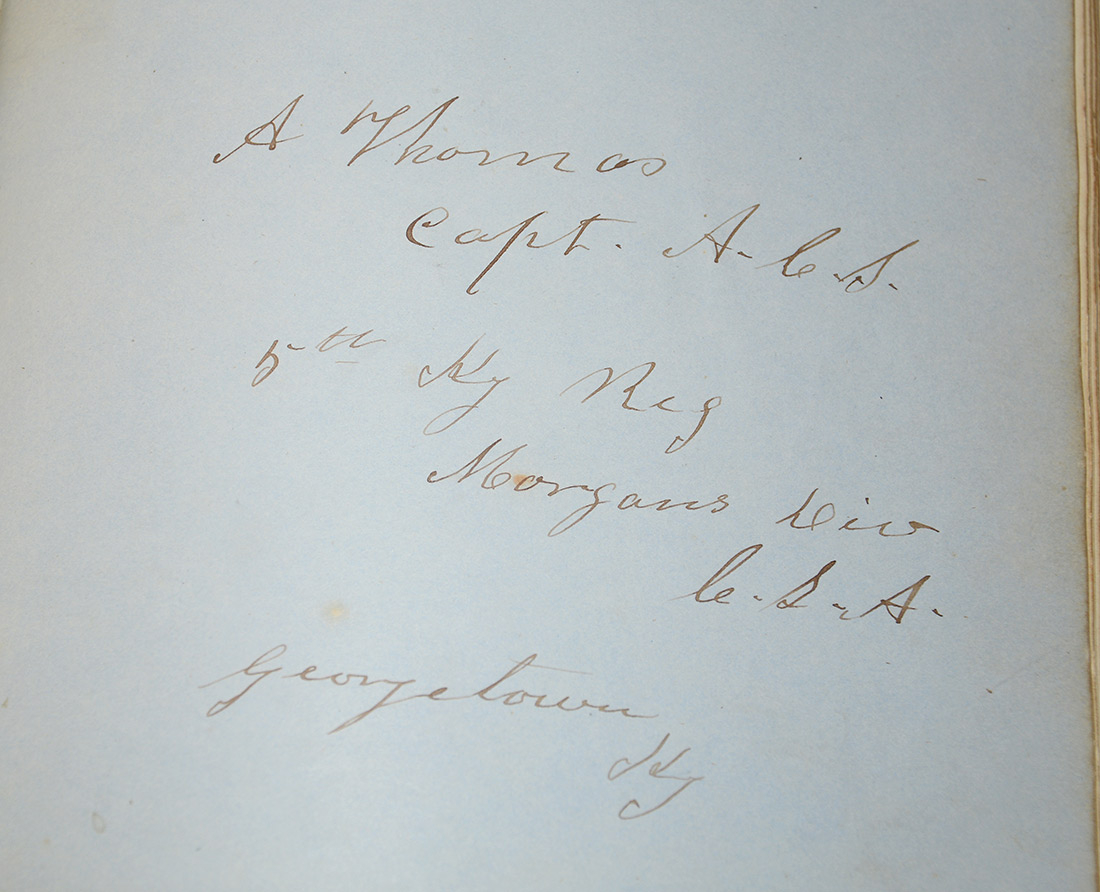 A Thomas
Capt. A. C. S.
5th Ky Reg
Morgans Div
C. S. A.
Georgetown
Ky